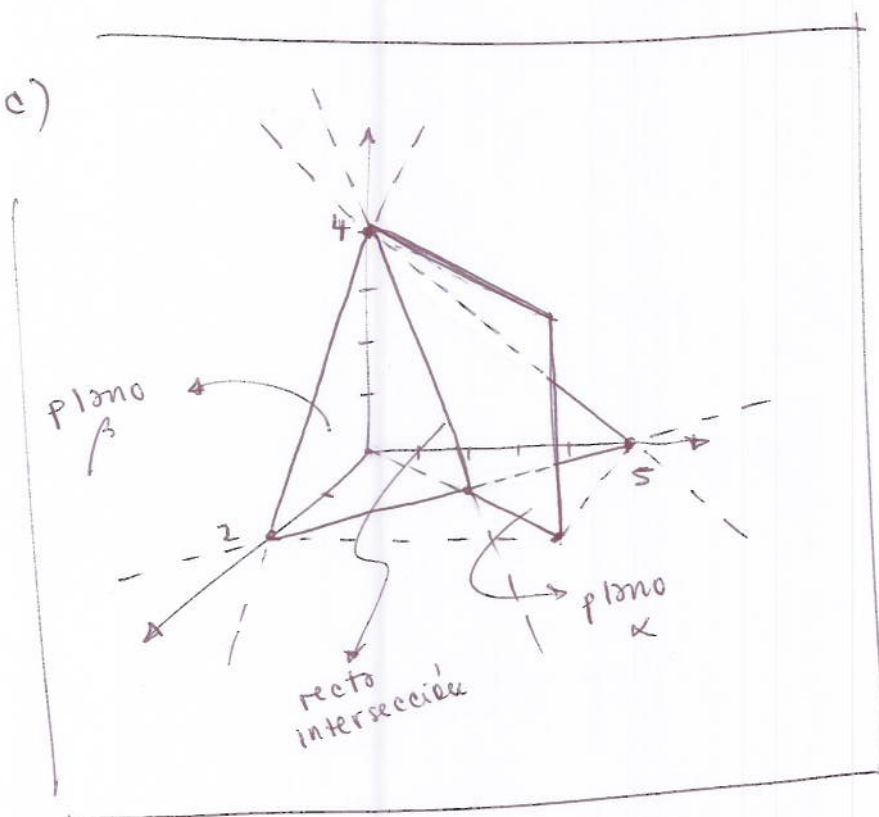 c)
4
plano
β
2
5
plano
α
recta
intersección